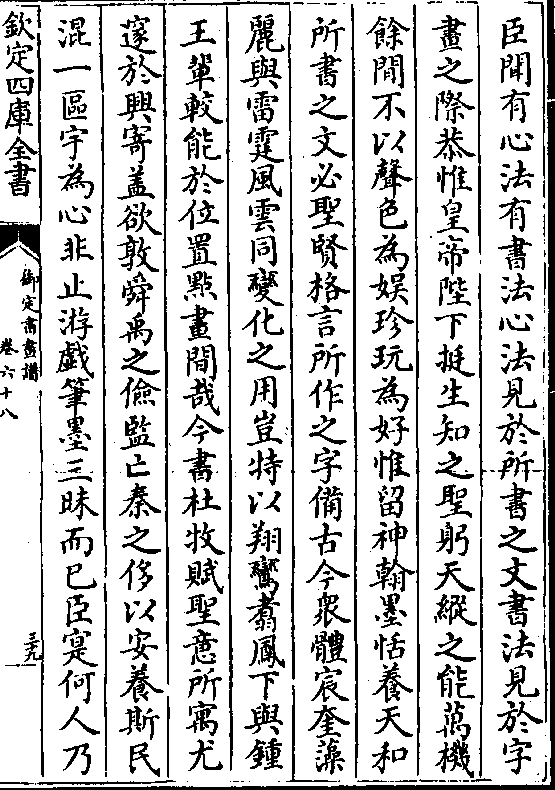 臣聞有心法有書法心法見於所書之文書法見於字
畫之際恭惟皇帝陛下挺生知之聖躬天縱之能萬機
餘間不以聲色為娱珍玩為好惟留神翰墨恬養天和
所書之文必聖賢格言所作之字備古今衆體宸奎藻
麗與雷霆風雲同變化之用豈特以翔鸞翥鳳下與鍾
王輩較能於位置點畫間哉今書杜牧賦聖意所寓尤
䆳於興寄盖欲敦舜禹之儉監亡秦之侈以安養斯民
混一區宇為心非止游戲筆墨三昧而已臣寔何人乃
欽定四庫全書
御定書畫譜
卷六十八
三九